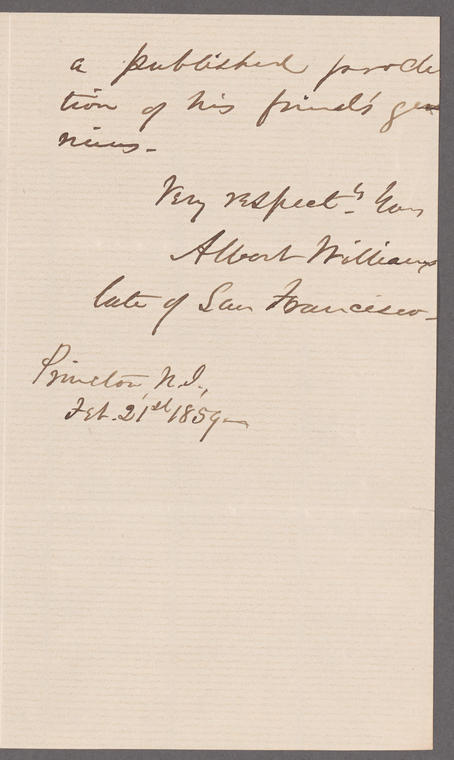 a published produc
tion of his friend's ge
nius.
Very respect.ly Yours
Albert Williams
late of San Francisco.
Princeton, N.J.,
Feb. 21st 1859